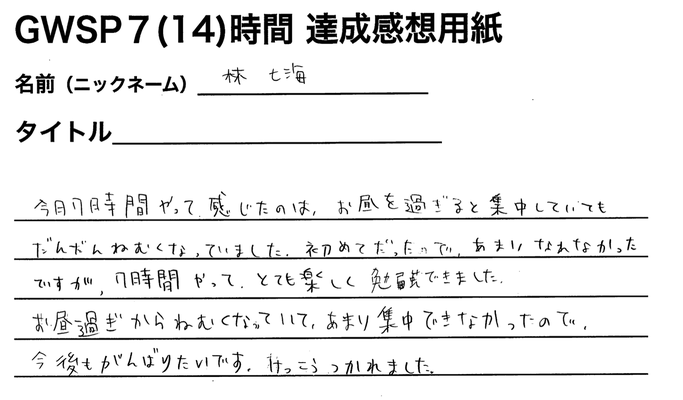 GWSP7(14)時間 達成感想用紙
名前（ニックネーム） 林 七海
タイトル
今日7時間やって感じたのは、お昼を過ぎると集中していても
だんだんねむくなっていました。初めてだったので、あまりなれなかった
ですが、7時間やって、とても楽しく勉強できました。
お昼過ぎからねむくなっていて、あまり集中できなかったので、
今後もがんばりたいです。けっこうつかれました。